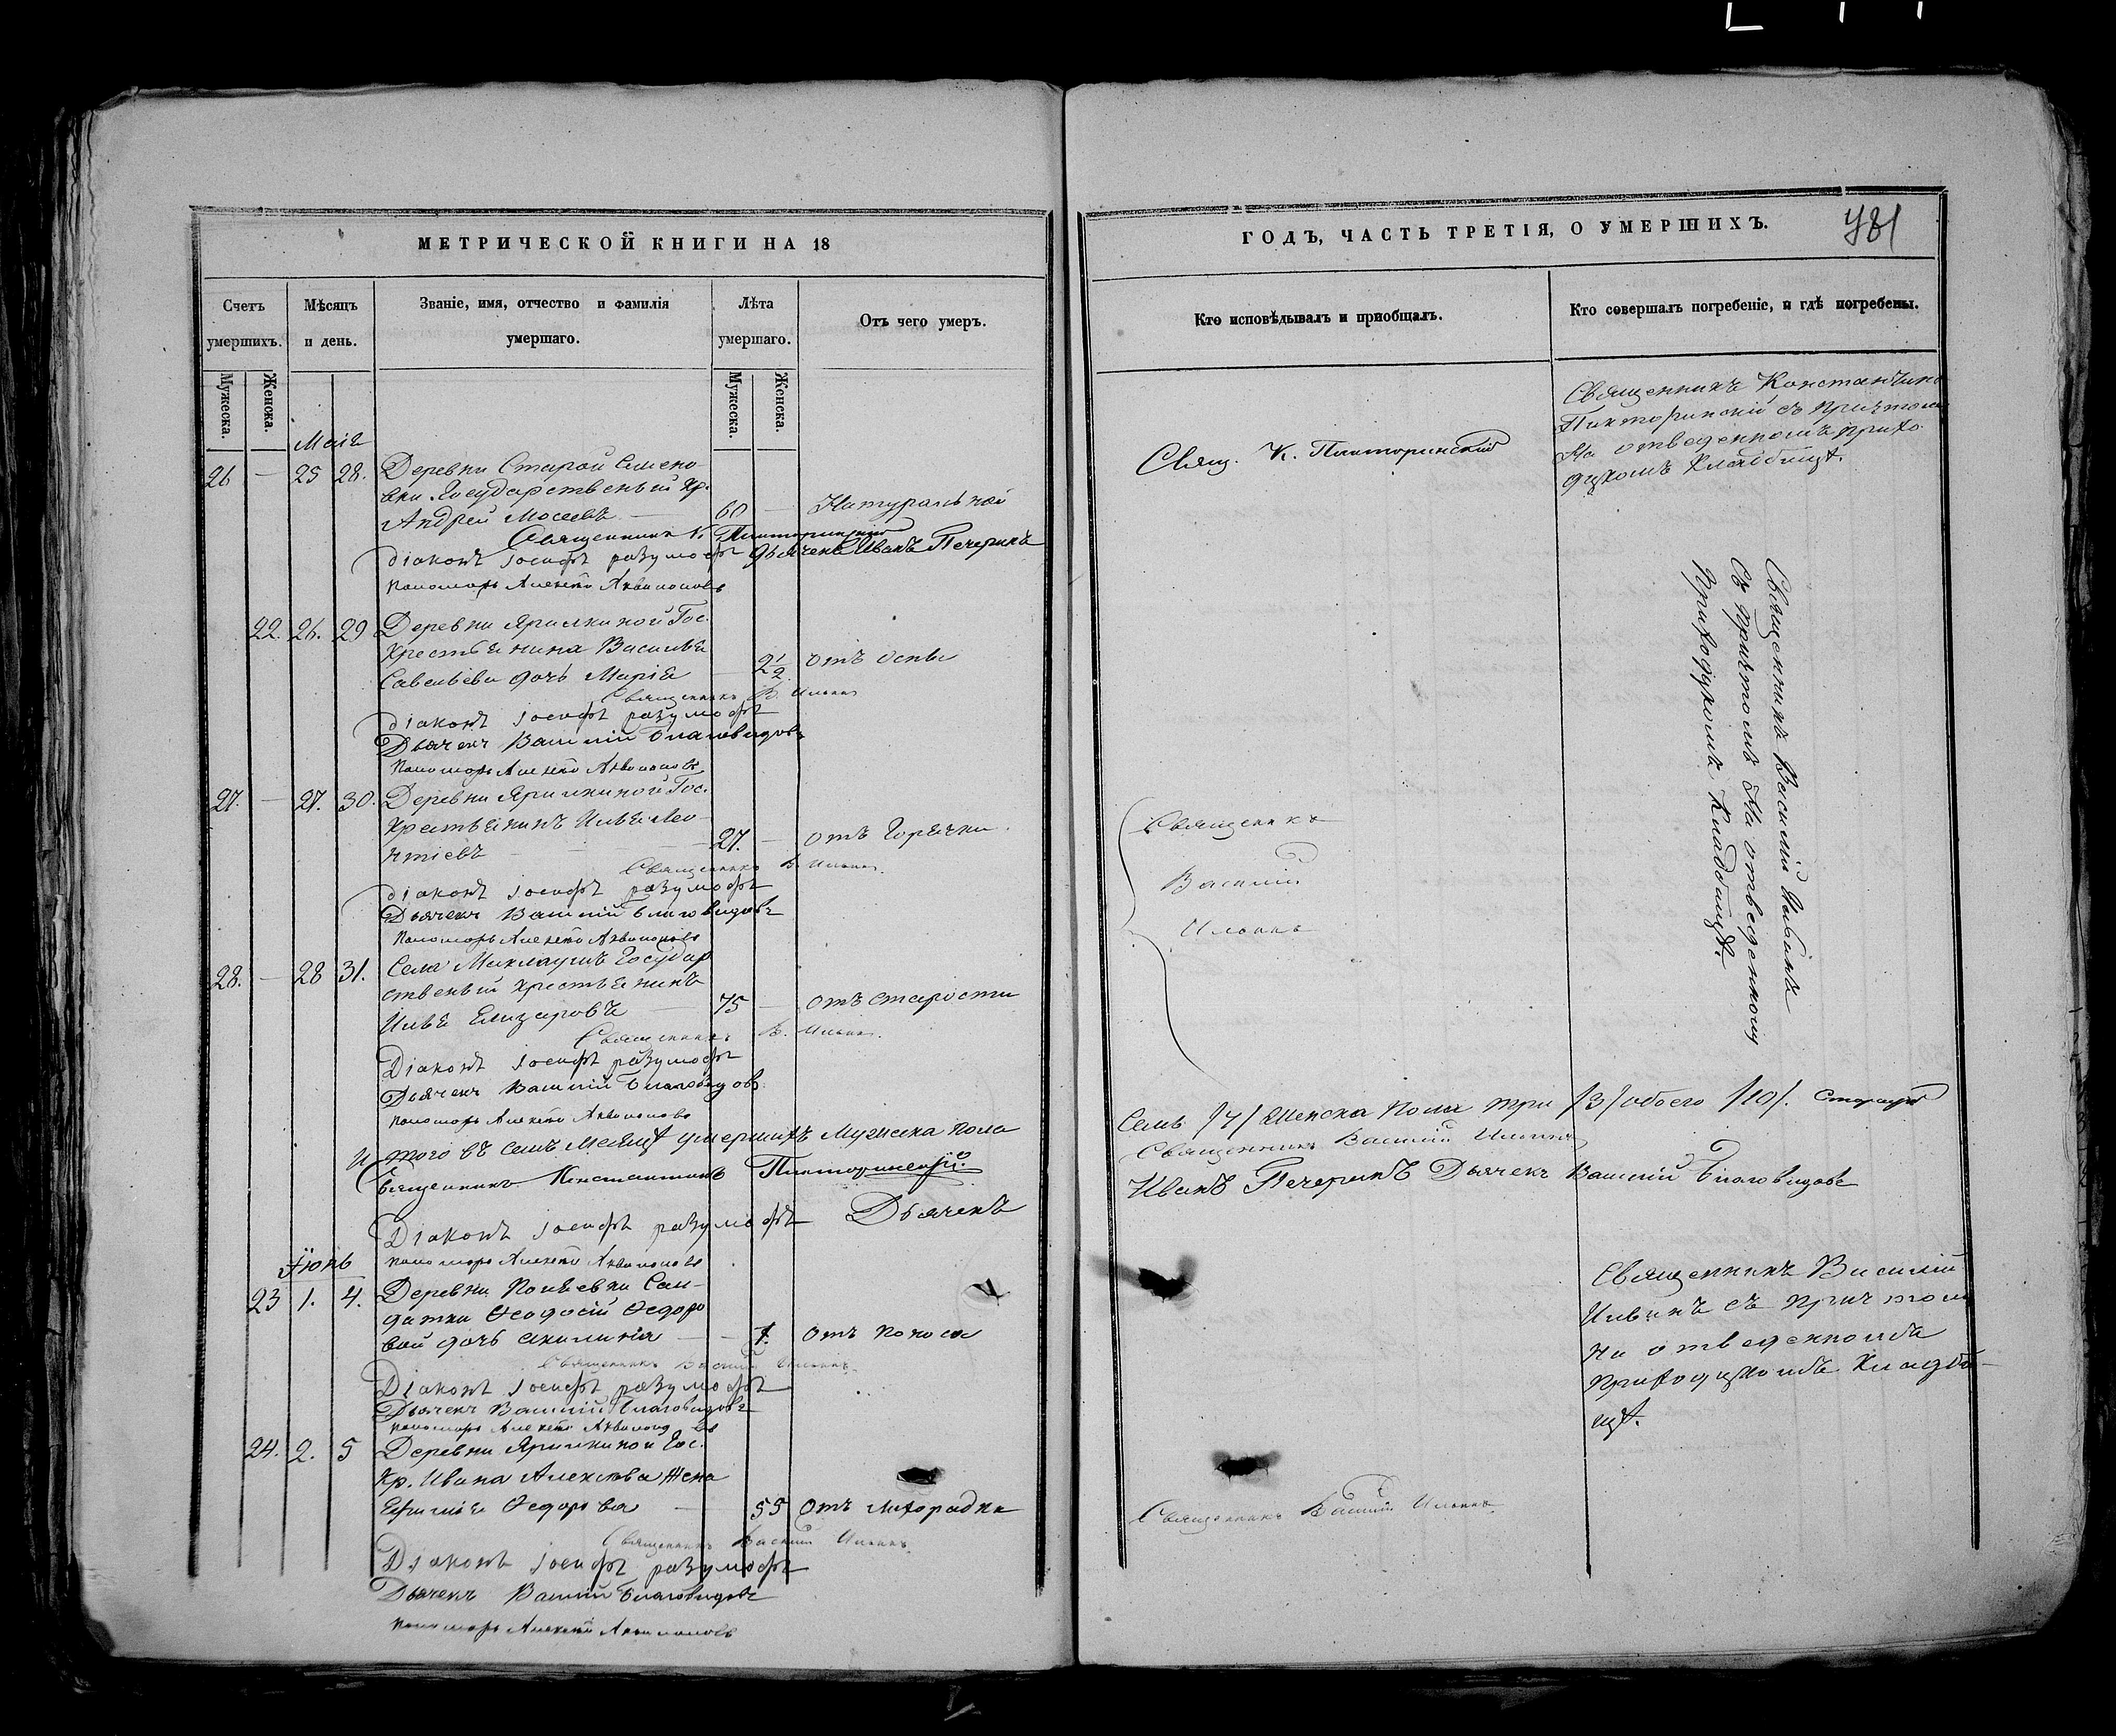 МЕТРИЧЕСКОЙ КНИГИ НА 18
Счетъ умершихъ.
Мѣсяцъ и день.
Званіе, имя, отчество и фамилія умершаго.
Лѣта умершаго.
Отъ чего умеръ.
Мужеска.
Женска.
Мужеска.
Женска.
Маія
26 — 25 28. Деревни Старой Семено-
вки Государственный Кр.
Андрей Мосеевъ — 60 — Натуральной
Священникъ К. Пикторинскій
Діаконъ Іосифъ разумофъ Дьячекъ Иванъ Печеринъ
пономарь Алексѣй
22. 26. 29 Деревни Ярилкиной Гос.
Крестьянина Василья
Савельева дочь Марія — 2 1/2 отъ оспы
Священникъ В. Ильинъ
Діаконъ Іосифъ разумофъ
Дьячекъ Василій Благовидовъ
пономарь Алексѣй
27. — 27. 30. Деревни Ярилкиной Гос.
Крестьянинъ Илья Лео-
нтіевъ — 27. — отъ Горячки.
Священникъ В. Ильинъ.
Діаконъ Іосифъ разумофъ
Дьячекъ Василій Благовидовъ
пономарь Алексѣй
28. — 28 31. Села Маклаушъ Государ
ственный крестьянинъ
Илья Елизаровъ — 75 — отъ старости
Священникъ В. Ильинъ.
Діаконъ Іосифъ разумофъ
Дьячекъ Василій Благовидовъ
пономарь Алексѣй
Итого въ семъ месяцѣ умершихъ мужеска пола
Священникъ Константинъ Пикторинскій.
Діаконъ Іосифъ разумофъ Дьячекъ
пономарь Алексѣй
Іюнь
23 1. 4. Деревни Полѣевки Сол-
датки Ѳеодосіи Ѳедоро
вой дочь Акилинія — — 7. отъ поноса
Священникъ Василій Ильинъ.
Діаконъ Іосифъ разумофъ
Дьячекъ Василій Благовидовъ
пономарь Алексѣй
24. 2. 5 Деревни Ярилкиной Гос.
Кр. Ивана Алексѣева жена
Ефимія Ѳедорова — 55 отъ лихорадки
Священникъ Василій Ильинъ.
Діаконъ Іосифъ разумофъ
Дьячекъ Василій Благовидовъ
пономарь Алексѣй
ГОДЪ, ЧАСТЬ ТРЕТІЯ, О УМЕРШИХЪ.
481
Кто исповѣдывалъ и приобщалъ.
Кто совершалъ погребеніе, и гдѣ погребены.
Свящ. К. Пикторинскій
Священникъ Константинъ
Пикторинскій съ причтомъ
На отведенномъ прихо-
дскомъ кладбищѣ.
Священникъ Василій Ильинъ
Съ причтомъ На отведенному
Приходскомъ Кладбищѣ.
Священникъ
Василій
Ильинъ
Семь /7/ Женска пола три /3/ обоего /10/.
Священникъ Василій Ильинъ
Иванъ Печеринъ Дьячекъ Василій Благовидовъ
Священникъ Василій
Ильинъ съ причтомъ
На отведенномъ
приходскомъ кладби-
щѣ.
Священникъ Василій Ильинъ